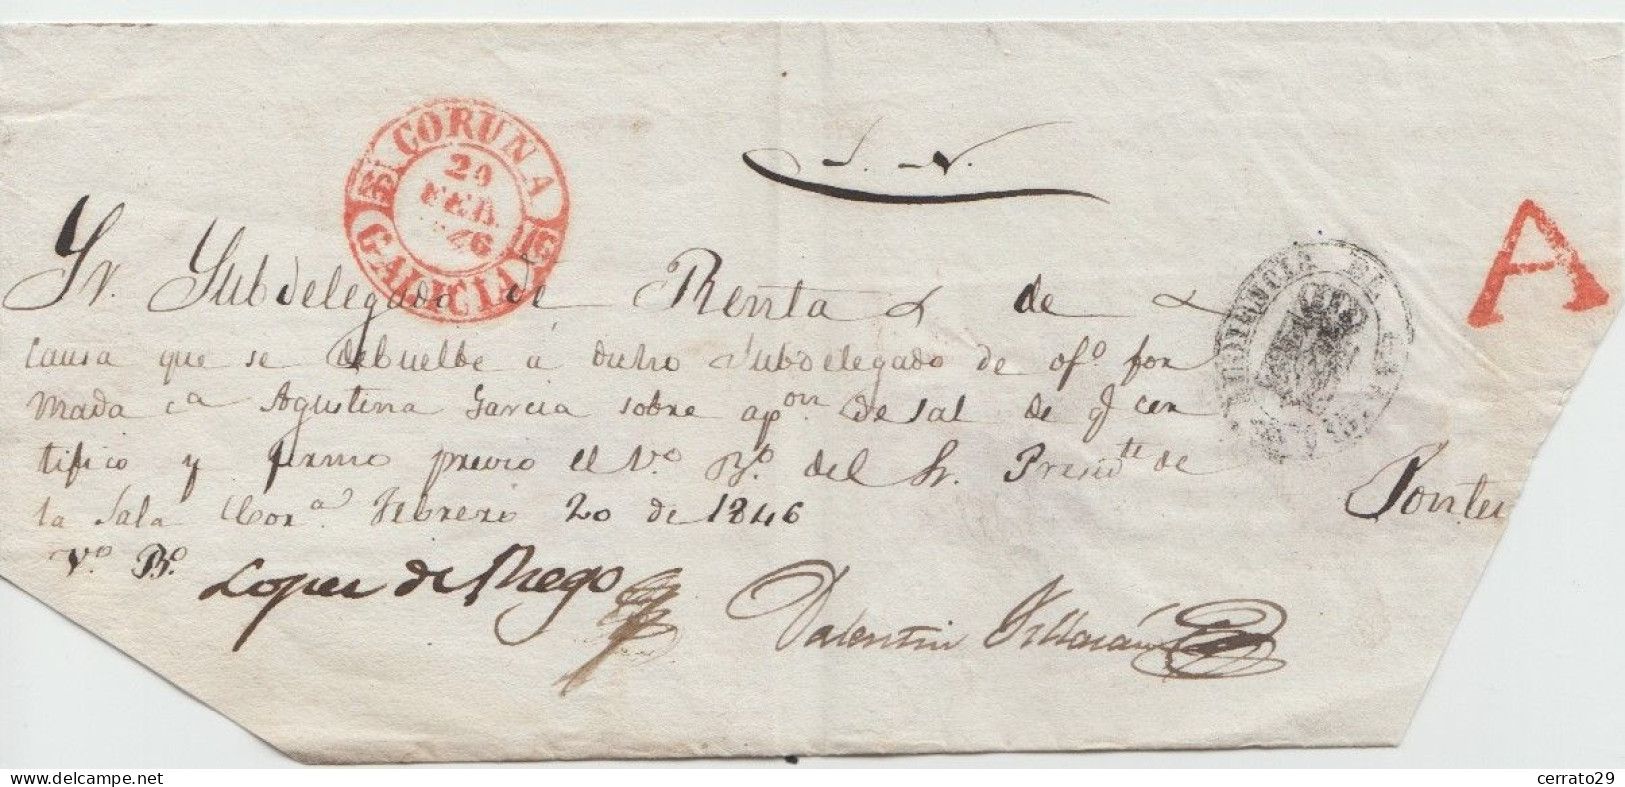 S. N.
CORUÑA
20
FEB.
1846
GALICIA
A
Sr. Subdelegado de Renta s de
causa que se debuelbe á dicho Subdelegado de ofº for
mada cª Agustina Garcia sobre apon de sal de q cer
tifico y firmo previo el Vº Bº del Sr. Presidte de
la Sala Corª Febrero 20 de 1846
Ponte
Vº Bº
Lopez de Rego
Valentin
AUDIENCIA
cerrato29